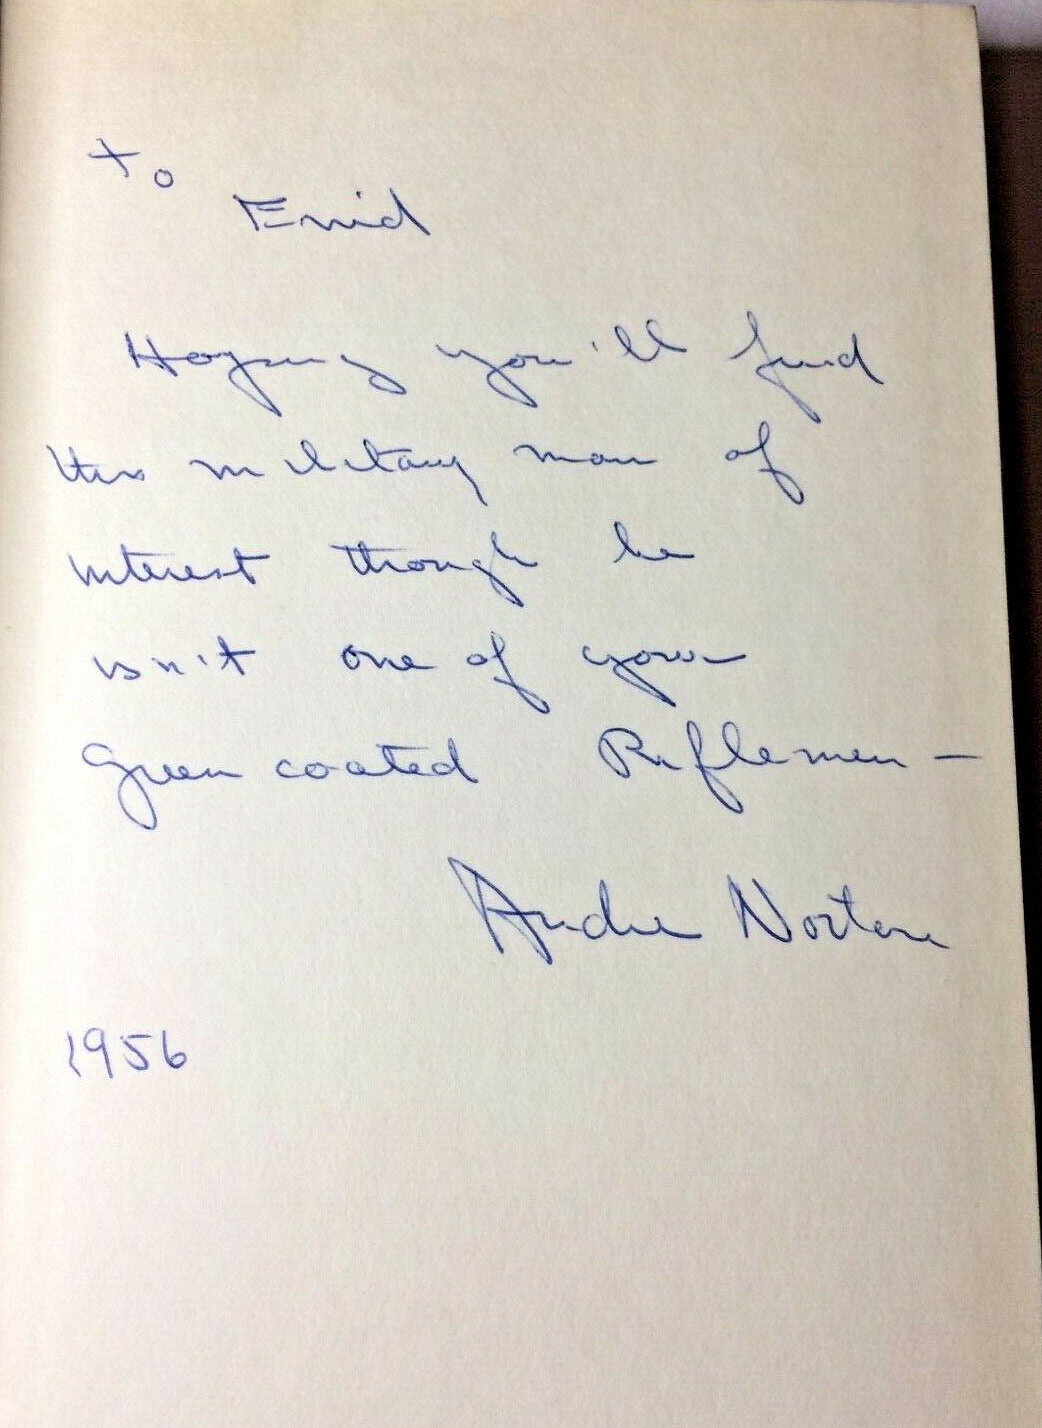 To
Enid
Hoping you'll find
this military man of
interest though he
isn't one of your
Green coated Riflemen —
Andre Norton
1956